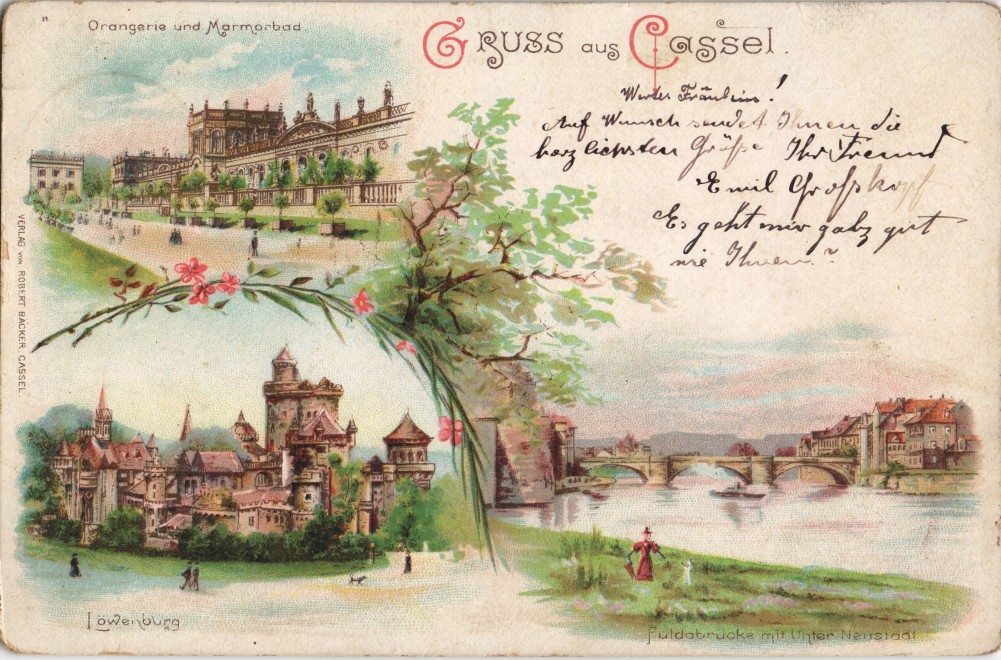 Orangerie und Marmorbad.
Gruss aus Cassel.
Wertes Fräulein!
Auf Wunsch sendet Ihnen die
herzlichsten Grüße Ihr Freund
Emil Großkopf
Es geht mir ganz gut
wie Ihnen?
VERLAG von ROBERT BACKER, CASSEL.
Löwenburg
Fuldabrücke mit Unter Neustadt